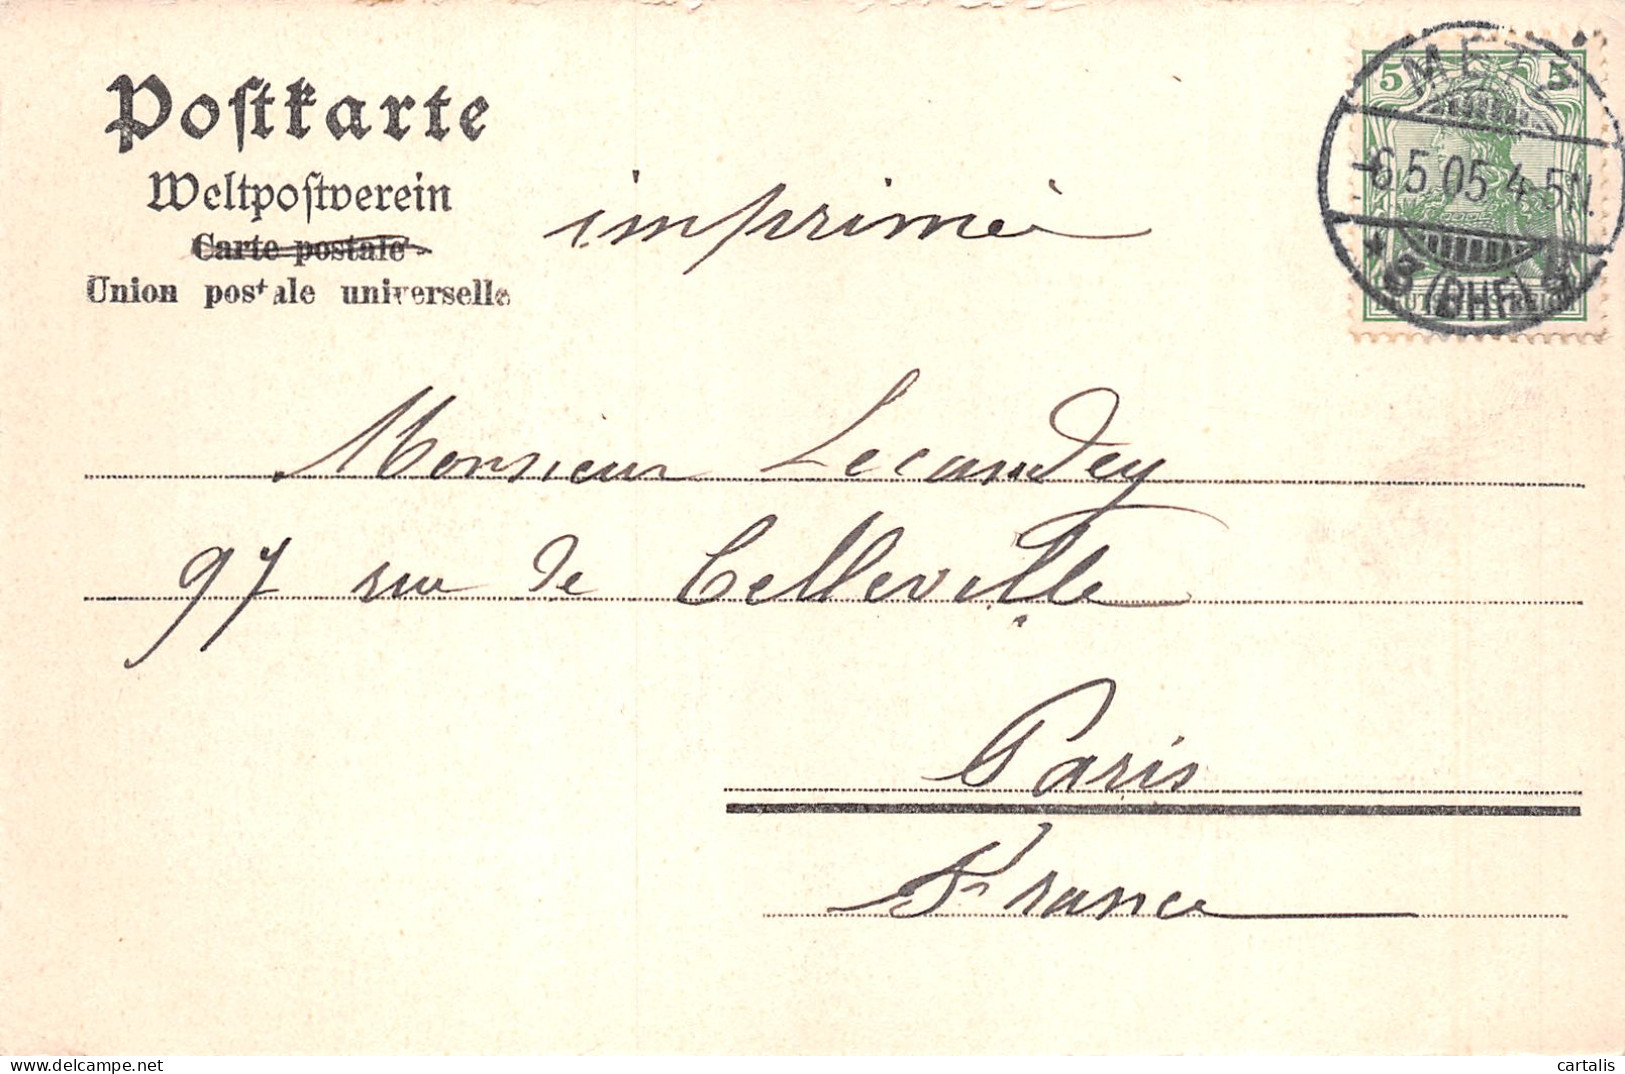 Postkarte
Weltpostverein
Carte postale
Union postale universelle
imprimé
METZ
-6.5.05.4-5N.
* 3 (BHF) *
5 5
DEUTSCHES REICH
Monsieur Lecandey
97 rue de Belleville
Paris
France
cartalis